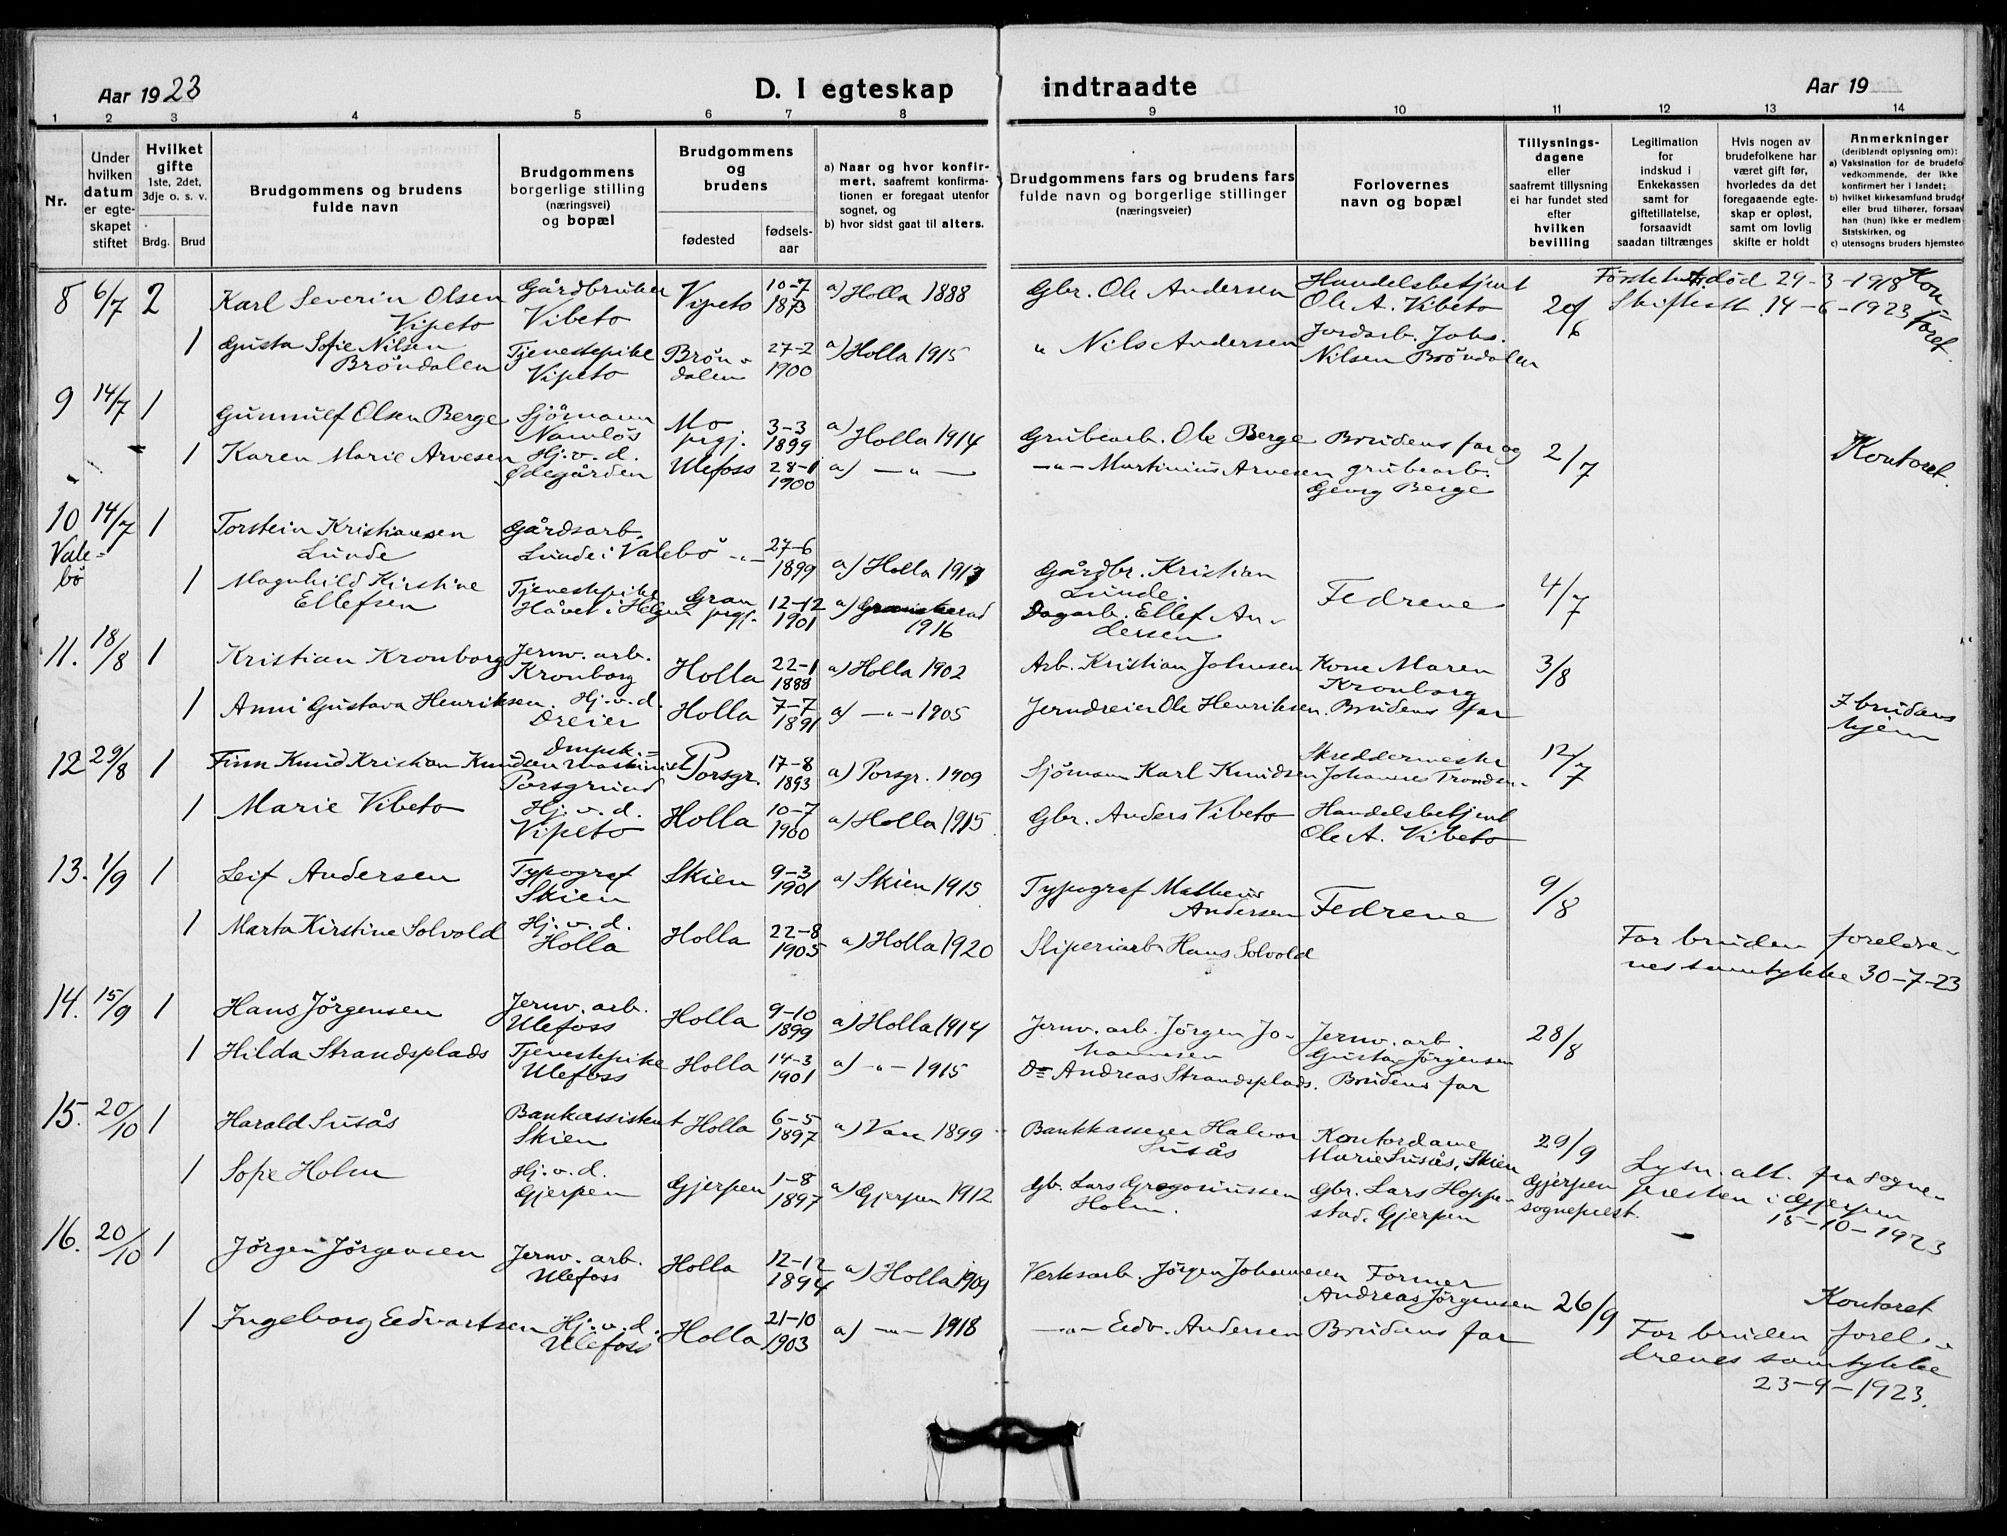 Aar 1923
D. I egteskap indtraadte
Aar 19
1 2 3 4 5 6 7 8 9 10 11 12 13 14
Nr.
Under hvilken datum er egteskapet stiftet
Hvilket gifte 1ste, 2det, 3dje o. s. v.
Brdg. Brud
Brudgommens og brudens fulde navn
Brudgommens borgerlige stilling (næringsvei) og bopæl
Brudgommens og brudens
fødested
fødsels-aar
a) Naar og hvor konfirmert, saafremt konfirmationen er foregaat utenfor sognet, og
b) hvor sidst gaat til alters.
Brudgommens fars og brudens fars fulde navn og borgerlige stillinger (næringsveier)
Forlovernes navn og bopæl
Tillysningsdagene eller saafremt tillysning ei har fundet sted efter hvilken bevilling
Legitimation for indskud i Enkekassen samt for giftetillatelse, forsaavidt saadan tiltrænges
Hvis nogen av brudefolkene har været gift før, hvorledes da det foregaaende egteskap er opløst, samt om lovlig skifte er holdt
Anmerkninger
(deriblandt oplysning om):
a) Vaksination for de brudefo
vedkommende, der ikke
konfirmert her i landet;
b) hvilket kirkesamfund brudg
eller brud tilhører, forsaav
han (hun) ikke er medlem
Statskirken, og
c) utensogns bruders hjemsted
8 6/7 2 Karl Severin Olsen Vipeto Gårdbruker Vibeto Vipeto 10-7 1873 a) Holla 1888 Gbr. Ole Andersen Handelsbetjent Ole A. Vibeto 20/6 død 29-3-1918 Skifteatt. 14-6-1923 Kontoret.
1 Gusta Sofie Nilsen Bröndalen Tjenestepike Vipeto Bröndalen 27-2 1900 a) Holla 1915 " Nils Andersen Jordarb. Johs. Nilsen Bröndalen
9 14/7 1 Gunnulf Olsen Berge Sjømann Namløs Mo prgj. 3-3 1899 a) Holla 1914 Grubearb. Ole Berge Brudens far og grubearb. Georg Berge 2/7 Kontoret.
1 Karen Marie Arvesen Hj.v.d. Ødegården Ulefoss 28-1 1900 a) —"— —"— Martinius Arvesen
10 Valebö 14/7 1 Torstein Kristiansen Lunde Gårdsarb. Lunde i Valebö —"— 27-6 1899 a) Holla 1913 Gårdbr. Kristian Lunde. Fedrene 4/7
1 Magnhild Kirstine Ellefsen Tjenestepike Håvet i Helgen Gran prgj. 12-12 1901 a) 1916 Dagarb. Ellef Andersen
11. 18/8 1 Kristian Kronborg Jernv. arb. Kronborg Holla 22-1 1888 a) Holla 1902 Arb. Kristian Johnsen Kone Maren Kronborg 3/8
1 Anni Gustava Henriksen. Hj.v.d. Dreier Holla 7-7 1891 a) —"— 1905 Jerndreier Ole Henriksen. Brudens far I brudens hjem
12 29/8 1 Finn Knud Kristian Knudsen Dmpsk.=maskinist Porsgrund Porsgr. 17-8 1893 a) Porsgr. 1909 Sjömann Karl Knudsen Skreddermester Johannes Trondsen 12/7
1 Marie Vibeto Hj.v.d. Vipeto Holla 10-7 1900 a) Holla 1915 Gbr. Anders Vibeto Handelsbetjent Ole A. Vibeto
13. 1/9 1 Leif Andersen Typograf Skien Skien 9-3 1901 a) Skien 1915 Typograf Matheus Andersen Fedrene 9/8
1 Marta Kirstine Solvold Hj.v.d. Holla Holla 22-8 1905 a) Holla 1920 Sliperiarb Hans Solvold For bruden foreldrenes samtykke 30-7-23
14. 15/9 1 Hans Jörgensen Jernv. arb. Ulefoss Holla 9-10 1899 a) Holla 1914 Jernv. arb. Jörgen Johannesen Jernv. arb. Gustav Jörgensen 28/8
1 Hilda Strandsplads Tjenestepike Ulefoss Holla 14-3 1901 a) —"— 1915 Do Andreas Strandsplads. Brudens far
15. 20/10 1 Harald Susås Bankassistent Skien Holla 6-5 1897 a) 1899 Bankkasserer Halvor Susås Kontordame Marie Susås, Skien 29/9
1 Sofie Holm Hj.v.d. Gjerpen Gjerpen 1-8 1897 a) Gjerpen 1912 Gb. Lars Gregoriussen Holm. Gbr. Lars Hoppestad. Gjerpen Gjerpen sogneprest. Lysn. att. fra sogneprесten i Gjerpen 15-10-1923
16. 20/10 1 Jörgen Jörgensen Jernv. arb. Ulefoss Holla 12-12 1894 a) Holla 1909 Verksarb. Jörgen Johannesen Former Andreas Jörgensen 26/9 Kontoret
1 Ingeborg Edvartsen Hj.v.d. Ulefoss Holla 21-10 1903 a) —"— 1918 —"— Edv. Andersen Brudens far For bruden foreldrenes samtykke 23-9-1923.